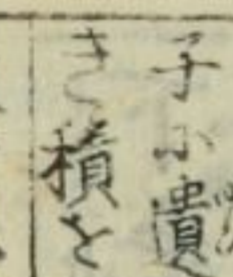 子に遺
き積を